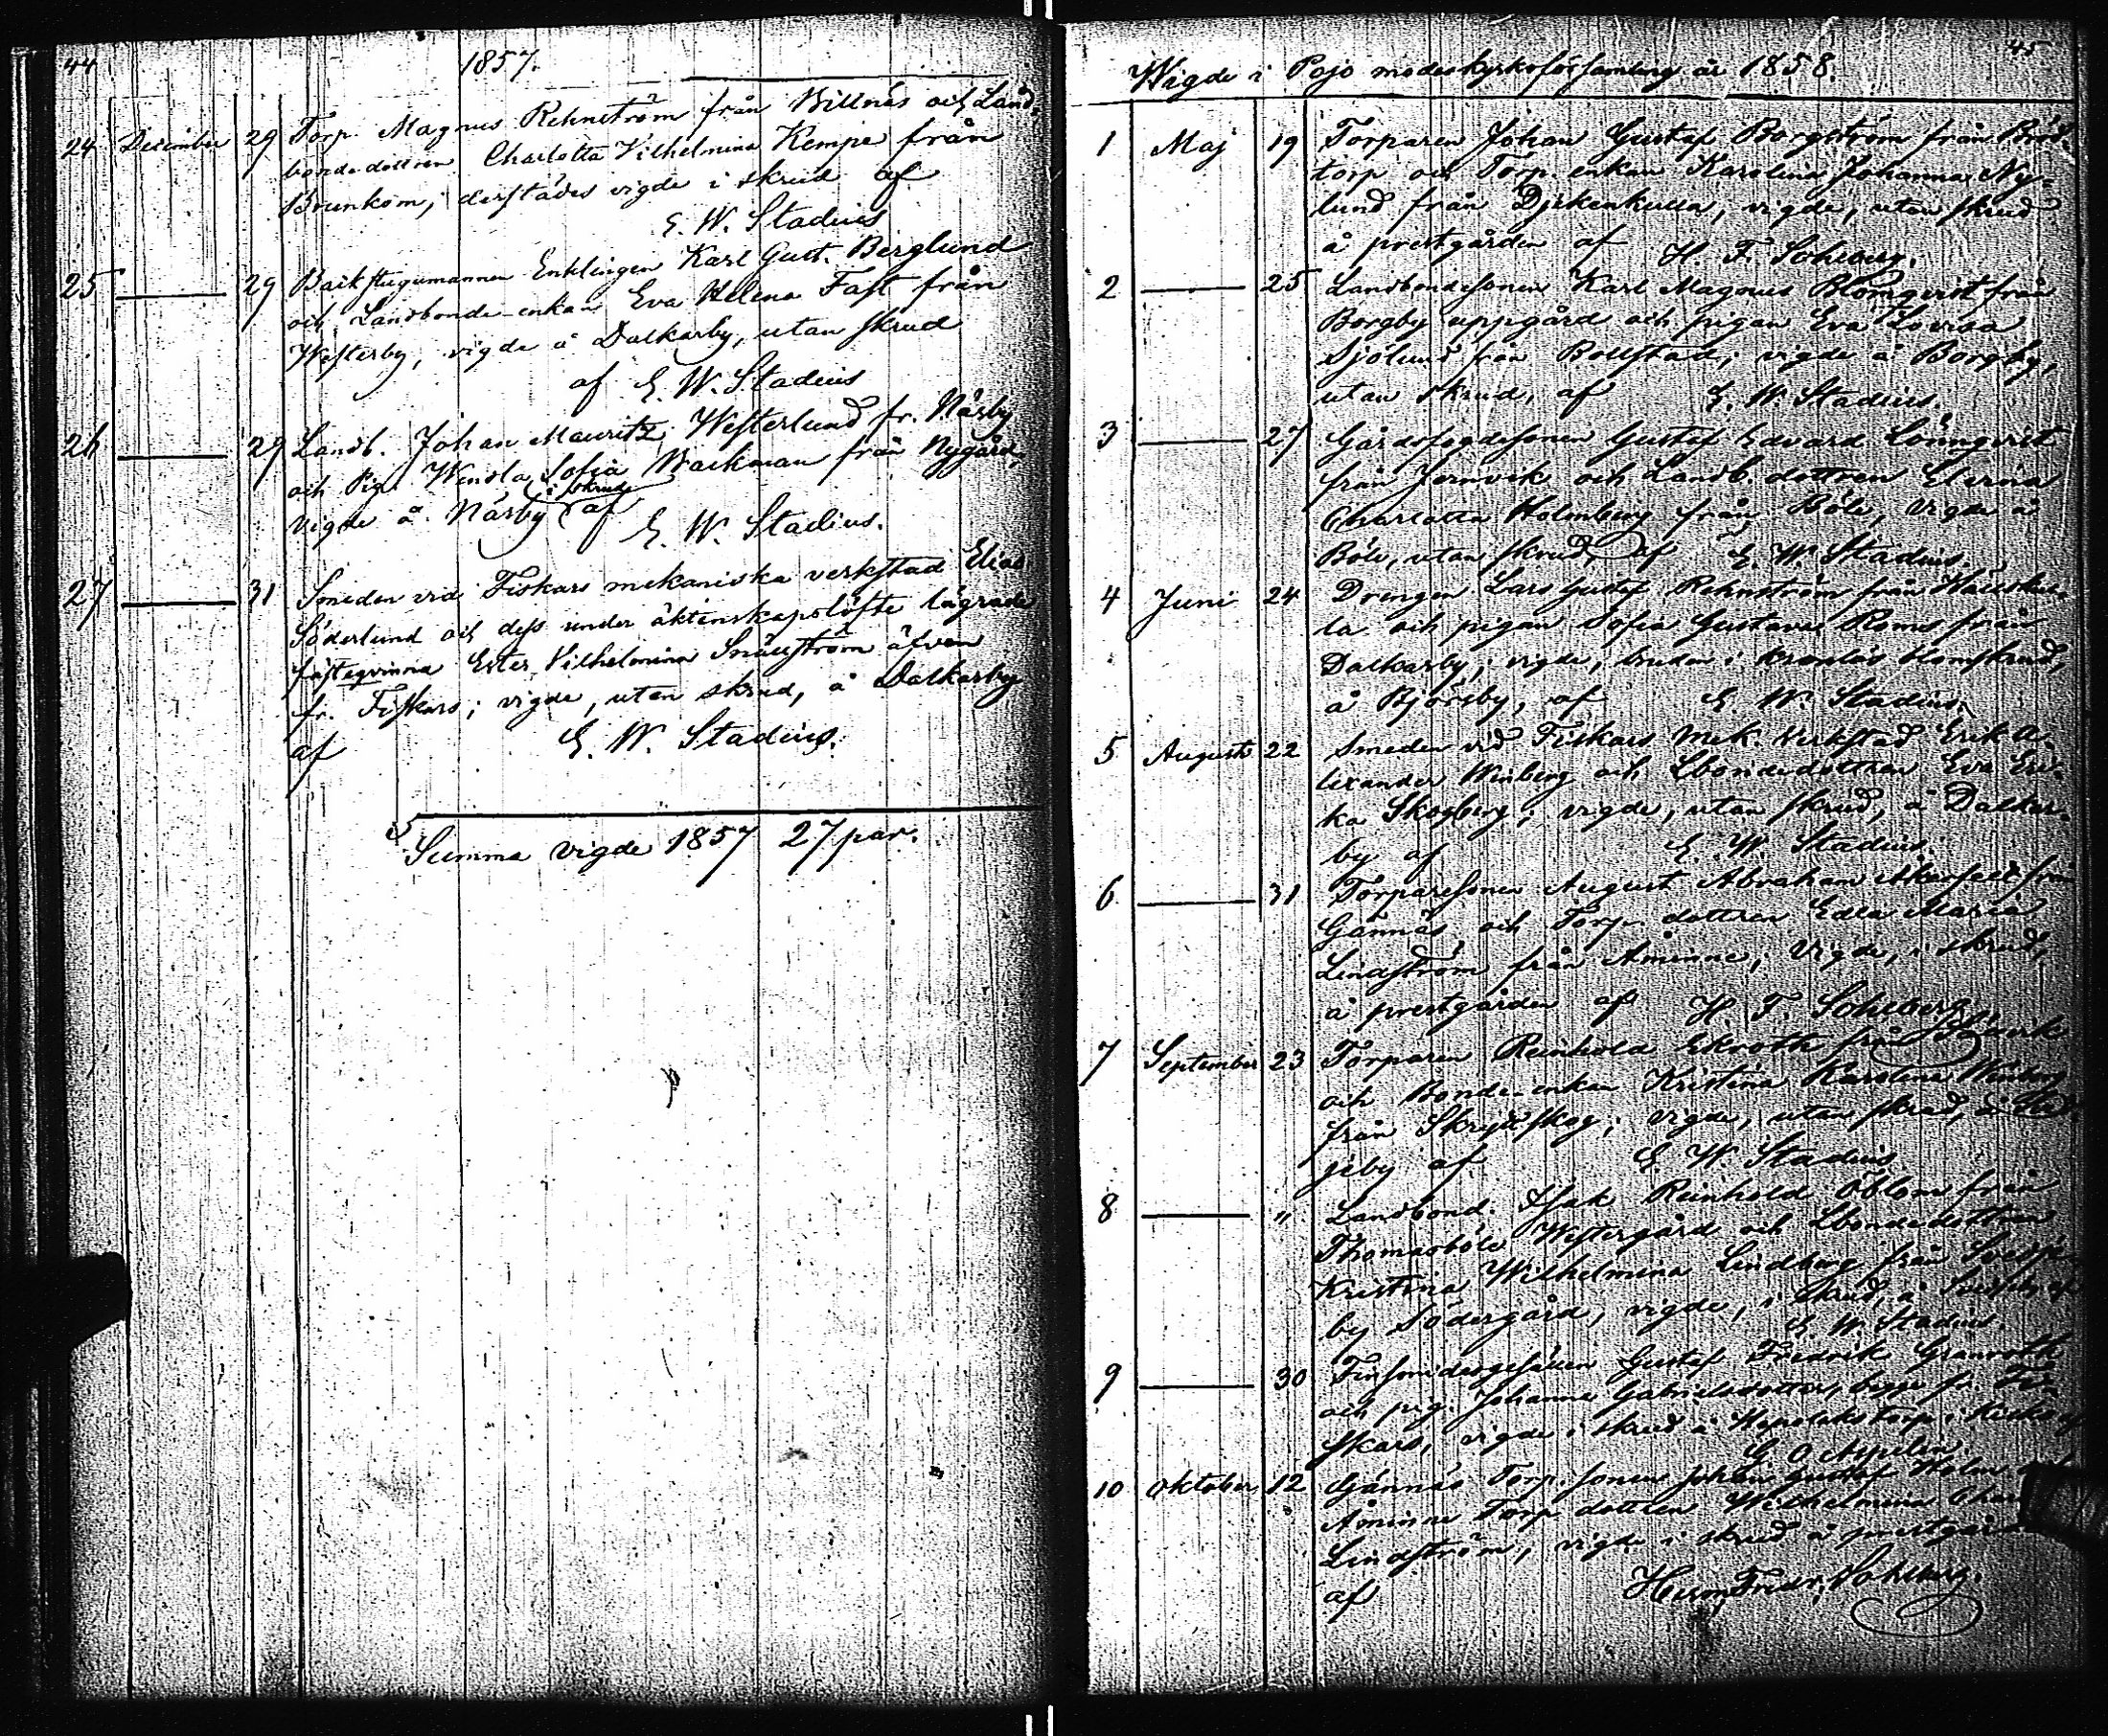 44
1857.
24 December 29 Torp. Magnus Rehnström från Billnäs och Land-
bondedottren Charlotta Vilhelmina Kempe från
Brunkom, derstädes vigde i skrud af
E. W. Stadius
25 — 29 Enklingen Karl Gust. Berglund
och Landbonde-enkan Eva Helena Fast från
Westerby, vigde å Dalkarby, utan skrud
af E. W. Stadius
26 — 29 Landb. Johan Mauritz Westerlund fr. Näsby
och Pig. Wendla Sofia Backman från Nygård,
i skrud
vigde å Näsby af
E. W. Stadius.
27 — 31 Smeden vid Fiskars mekaniska verkstad Elias
Söderlund och dess under äktenskapslöfte lägrade
fästeqvinna Ester Vilhelmina Snällström äfven
fr. Fiskars; vigde, utan skrud, å Dalkarby
af E. W. Stadius.
Summa vigde 1857 27 par.
45
Wigde i Pojo moderkyrkoförsamling år 1858.
1 Maj 19 Torparen Johan Gustaf Borgström från
torp och Torp. enkan Karolina Johanna Ny-
lund från Djekenkulla, vigde, utan skrud
å prestgården af H. F. Sohlberg.
2 — 25 Landbondesonen Karl Magnus Blomqvist från
Borgby uppgård och pigan Eva Lovisa
Sjölund från Bollstad; vigde å Borgby,
utan skrud, af E. W. Stadius.
3 — 27 Gårdsfogdesonen Gustaf Edvard Lönnqvist
från Jernvik och Landb. dottren
Charlotta Holmberg från Böle, vigde å
Böle, utan skrud, af E. W. Stadius.
4 Juni 24 Drengen Lars Gustaf Rehnström från Hällskul-
la och pigan Sofia Gustava Roms från
Dalkarby; vigde, bruden i kronlös
å Björsby, af E. W. Stadius.
5 Augusti 22 Smeden vid Fiskars Mek. Verkstad Erik A-
lexander Winberg och Lbondedottren Eva Eri-
ka Skogberg; vigde, utan skrud, å Dalkar-
by af E. W. Stadius.
6 — 31 Torparesonen August Abraham Åkerfelt från
Gännäs och Torp. dottren Edla Maria
Lindström från Åminne; vigde, i skrud,
å prestgården af H. F. Sohlberg
7 September 23 Torparen Reinhold Ekroth från
och Bonde-enkan Kristina Karolina Winberg
från Skrydskog; vigde, utan skrud, å
jeby af E. W. Stadius
8 — " Landbond. Isak Reinhold Öblom från
Thomasböle Westergård och Lbondedottren
Kristina Wilhelmina Lindberg från
by Södergård, vigde, i skrud, å
E. W. Stadius.
9 — 30 Finsmidsgesällen Gustaf Fredrik Granroth
och pig. Johanna Gabrielsdotter, begge fr. Fi-
skars, vigde i skrud å torp i Kisko af
G. O. Aspelin.
10 Oktober 12 Gännäs Torp. sonen Johan Gustaf Holm
Åminne Torp dottren Wilhelmina
Lindström, vigde i skrud å prestgården
af Herm. Fredr. Sohlberg.